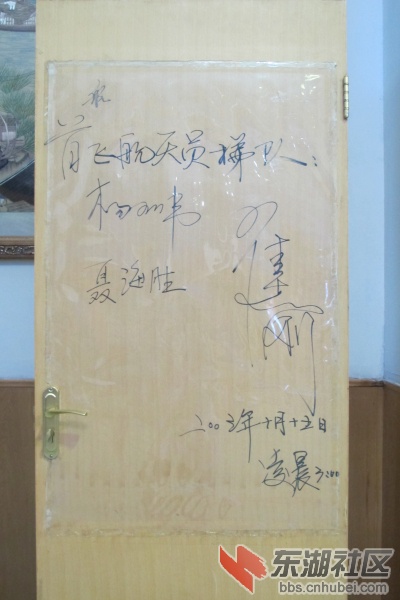 首飞航天员梯队：
杨利伟
翟志刚
聂海胜
二00三年十月十五日
凌晨3:00
东湖社区
bbs.cnhubei.com